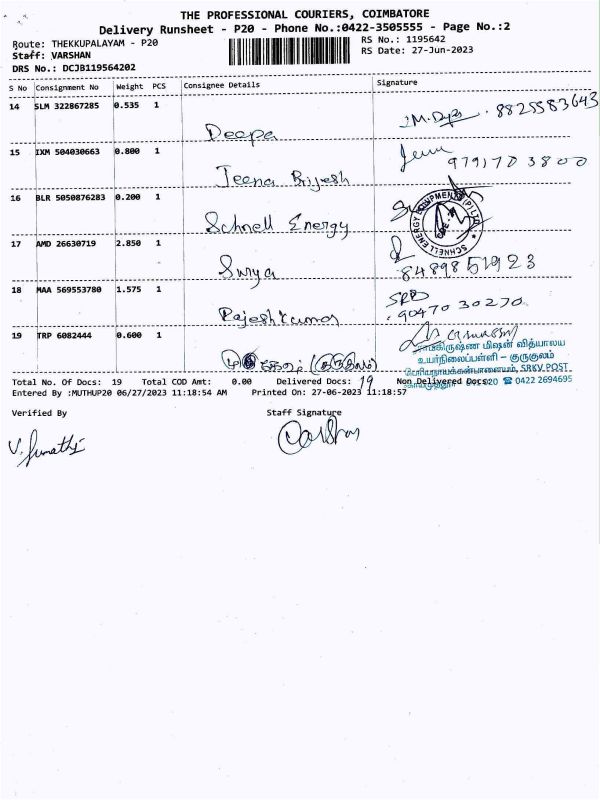 THE PROFESSIONAL COURIERS, COIMBATORE
Delivery Runsheet - P20 - Phone No.:0422-3505555 - Page No.:2
Route: THEKKUPALAYAM - P20
RS No.: 1195642
Staff: VARSHAN
RS Date: 27-Jun-2023
DRS No.: DCJB119564202
S No Consignment No Weight PCS Consignee Details Signature
14 SLM 322867285 0.535 1
8825583643
Deepa
15 IXM 504030663 0.800 1
9791703800
Jeena Brijesh
16 BLR 5050876283 0.200 1
Schnell Energy
SCHNELL ENERGY EQUIPMENTS (P) LTD
17 AMD 26630719 2.850 1
Surya
8489851923
18 MAA 569553780 1.575 1
9047030270
Rajesh Kumar
19 TRP 6082444 0.600 1
ராமகிருஷ்ண மிஷன் வித்யாலயா
உயர்நிலைப்பள்ளி - குருகுலம்
பெரியநாயக்கன்பாளையம், SRKV POST
கோயமுத்தூர் 641 020 ☎ 0422 2694695
Total No. Of Docs: 19 Total COD Amt: 0.00 Delivered Docs: 19 Non Delivered Docs:
Entered By :MUTHUP20 06/27/2023 11:18:54 AM Printed On: 27-06-2023 11:18:57
Verified By Staff Signature
V. Sumathi Varshan